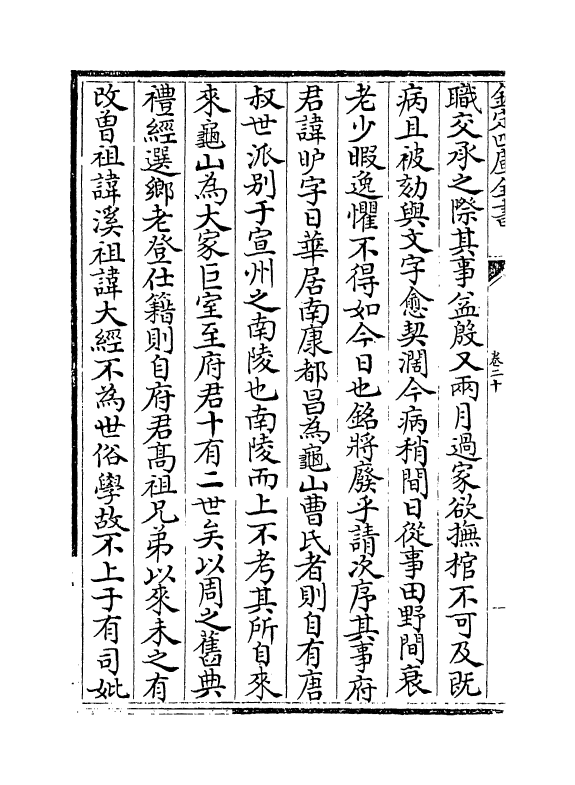 欽定四庫全書
卷二十
職交承之際其事益殷又兩月過家欲撫棺不可及既
病且被劾與文字愈契濶今病稍間日從事田野間衰
老少暇逸懼不得如今日也銘將廢乎請次序其事府
君諱昈字日華居南康都昌為龜山曹氏者則自有唐
叔世派别于宣州之南陵也南陵而上不考其所自來
來龜山為大家巨室至府君十有二世矣以周之舊典
禮經選鄉老登仕籍則自府君髙祖兄弟以來未之有
改曽祖諱溪祖諱大經不為世俗學故不上于有司妣